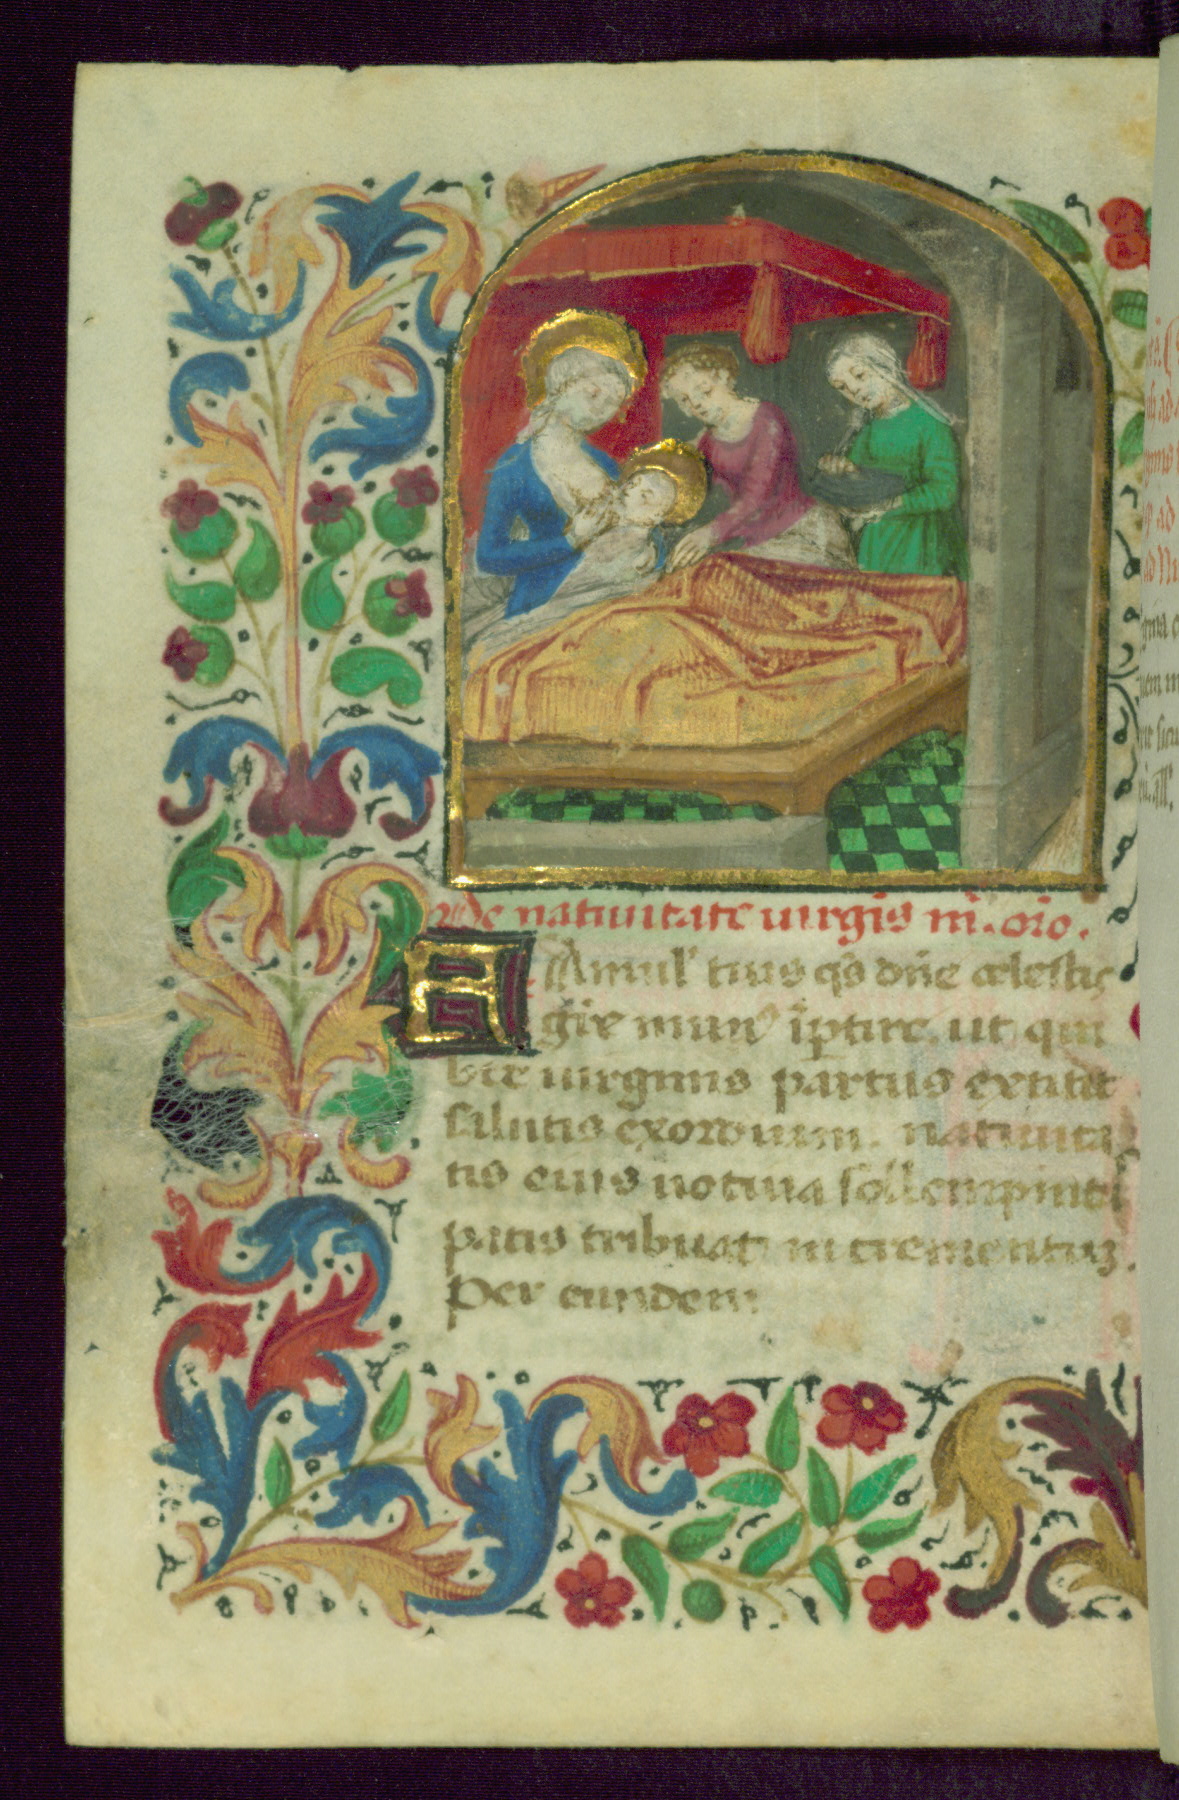 de natiuitate uirgīs m̄. oro.
Famul' tuis qs̄ dn̄e celestis
gr̄e mun' īptire. ut qui
bus uirginis partus extitit
salutis exordium. natiuita
tis eius uotiua sollempnitas
pacis tribuat incrementuz.
Per eundem